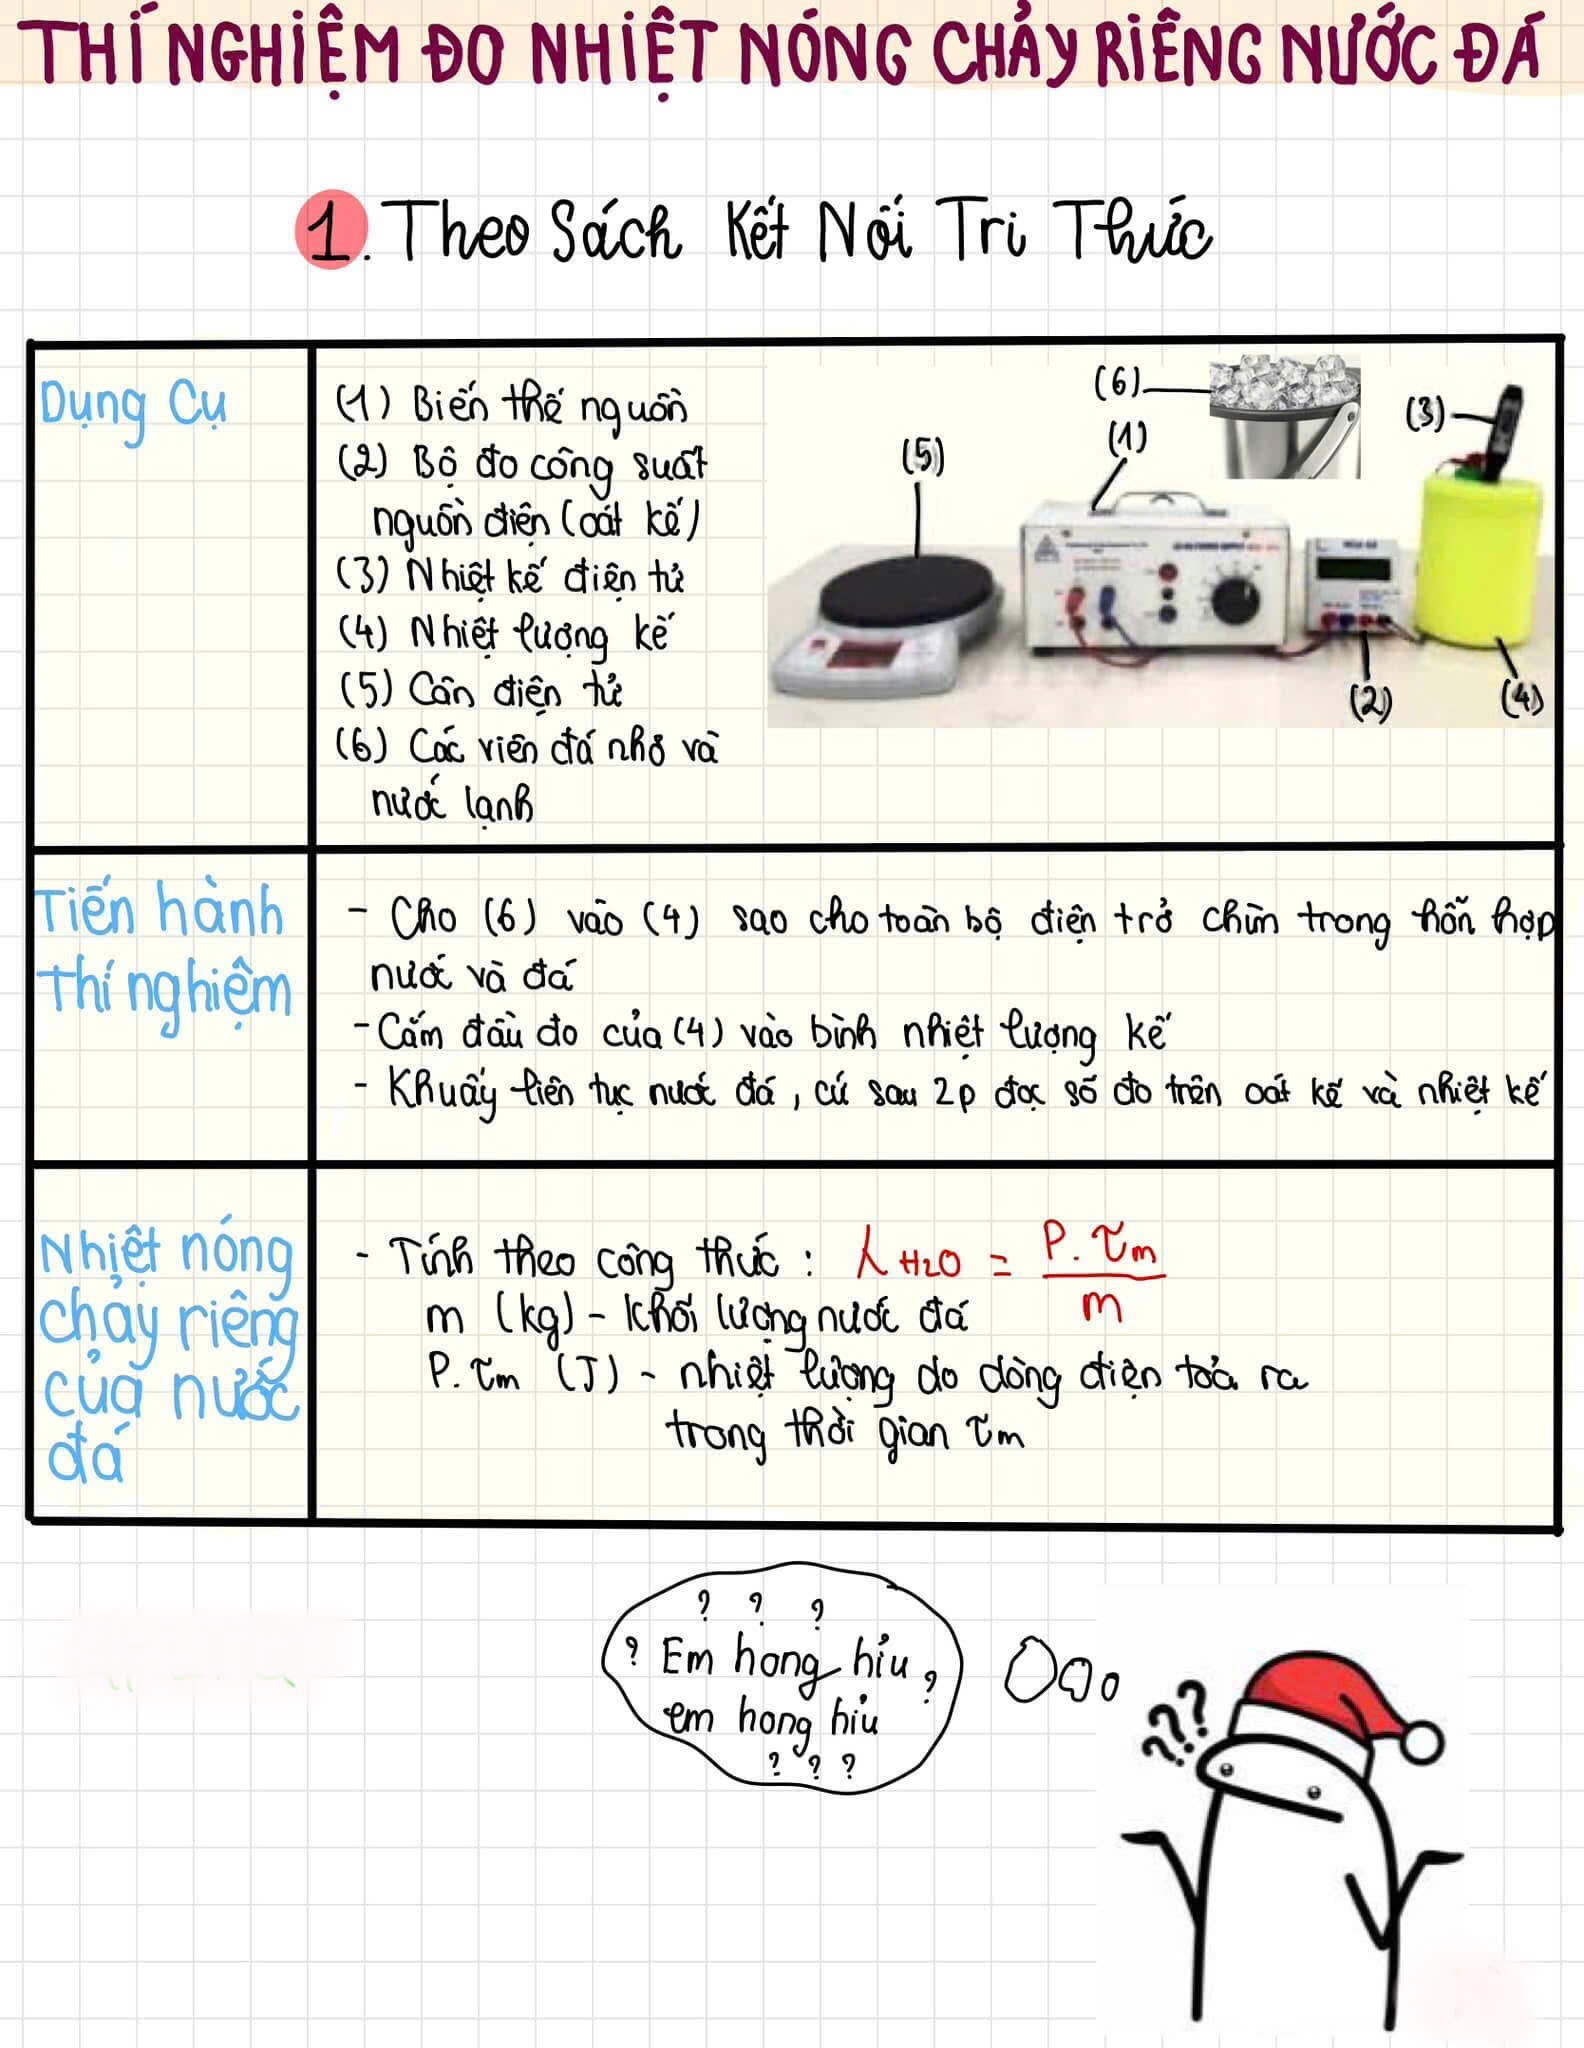 THÍ NGHIỆM ĐO NHIỆT NÓNG CHẢY RIÊNG NƯỚC ĐÁ
1. Theo Sách Kết Nối Tri Thức
Dụng Cụ
(1) Biến thế nguồn
(2) Bộ đo công suất
nguồn điện (oát kế)
(3) Nhiệt kế điện tử
(4) Nhiệt lượng kế
(5) Cân điện tử
(6) Các viên đá nhỏ và
nước lạnh
(6)
(3)
(1)
(5)
(2)
(4)
Tiến hành
thí nghiệm
- Cho (6) vào (4) sao cho toàn bộ điện trở chìm trong hỗn hợp
nước và đá
- Cắm đầu đo của (4) vào bình nhiệt lượng kế
- Khuấy liên tục nước đá, cứ sau 2p đọc số đo trên oát kế và nhiệt kế
Nhiệt nóng
chảy riêng
của nước
đá
- Tính theo công thức: λH2O = P.τm / m
m (kg) - Khối lượng nước đá
P.τm (J) - nhiệt lượng do dòng điện toả ra
trong thời gian τm
? ? ?
? Em hong hỉu ?
em hong hỉu
? ? ?
???